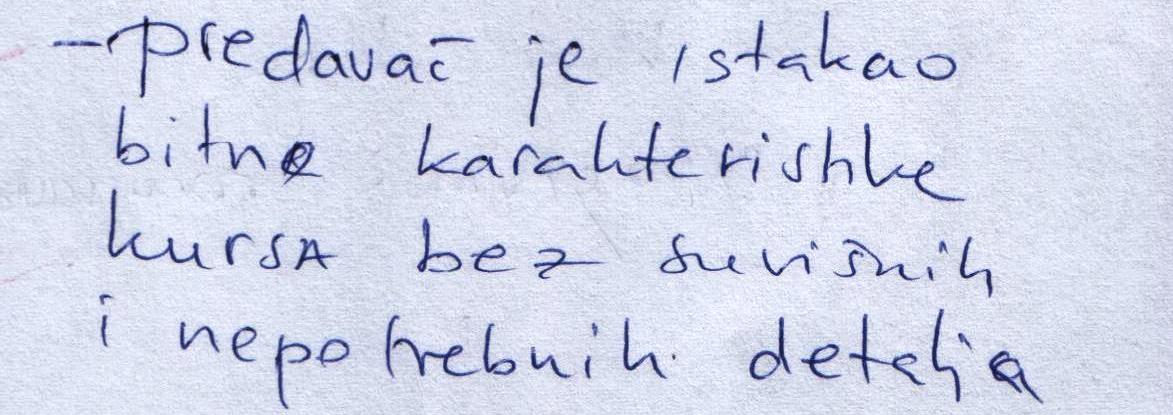 - predavač je istakao
bitne karakteristike
kursa bez suvišnih
i nepotrebnih detalja